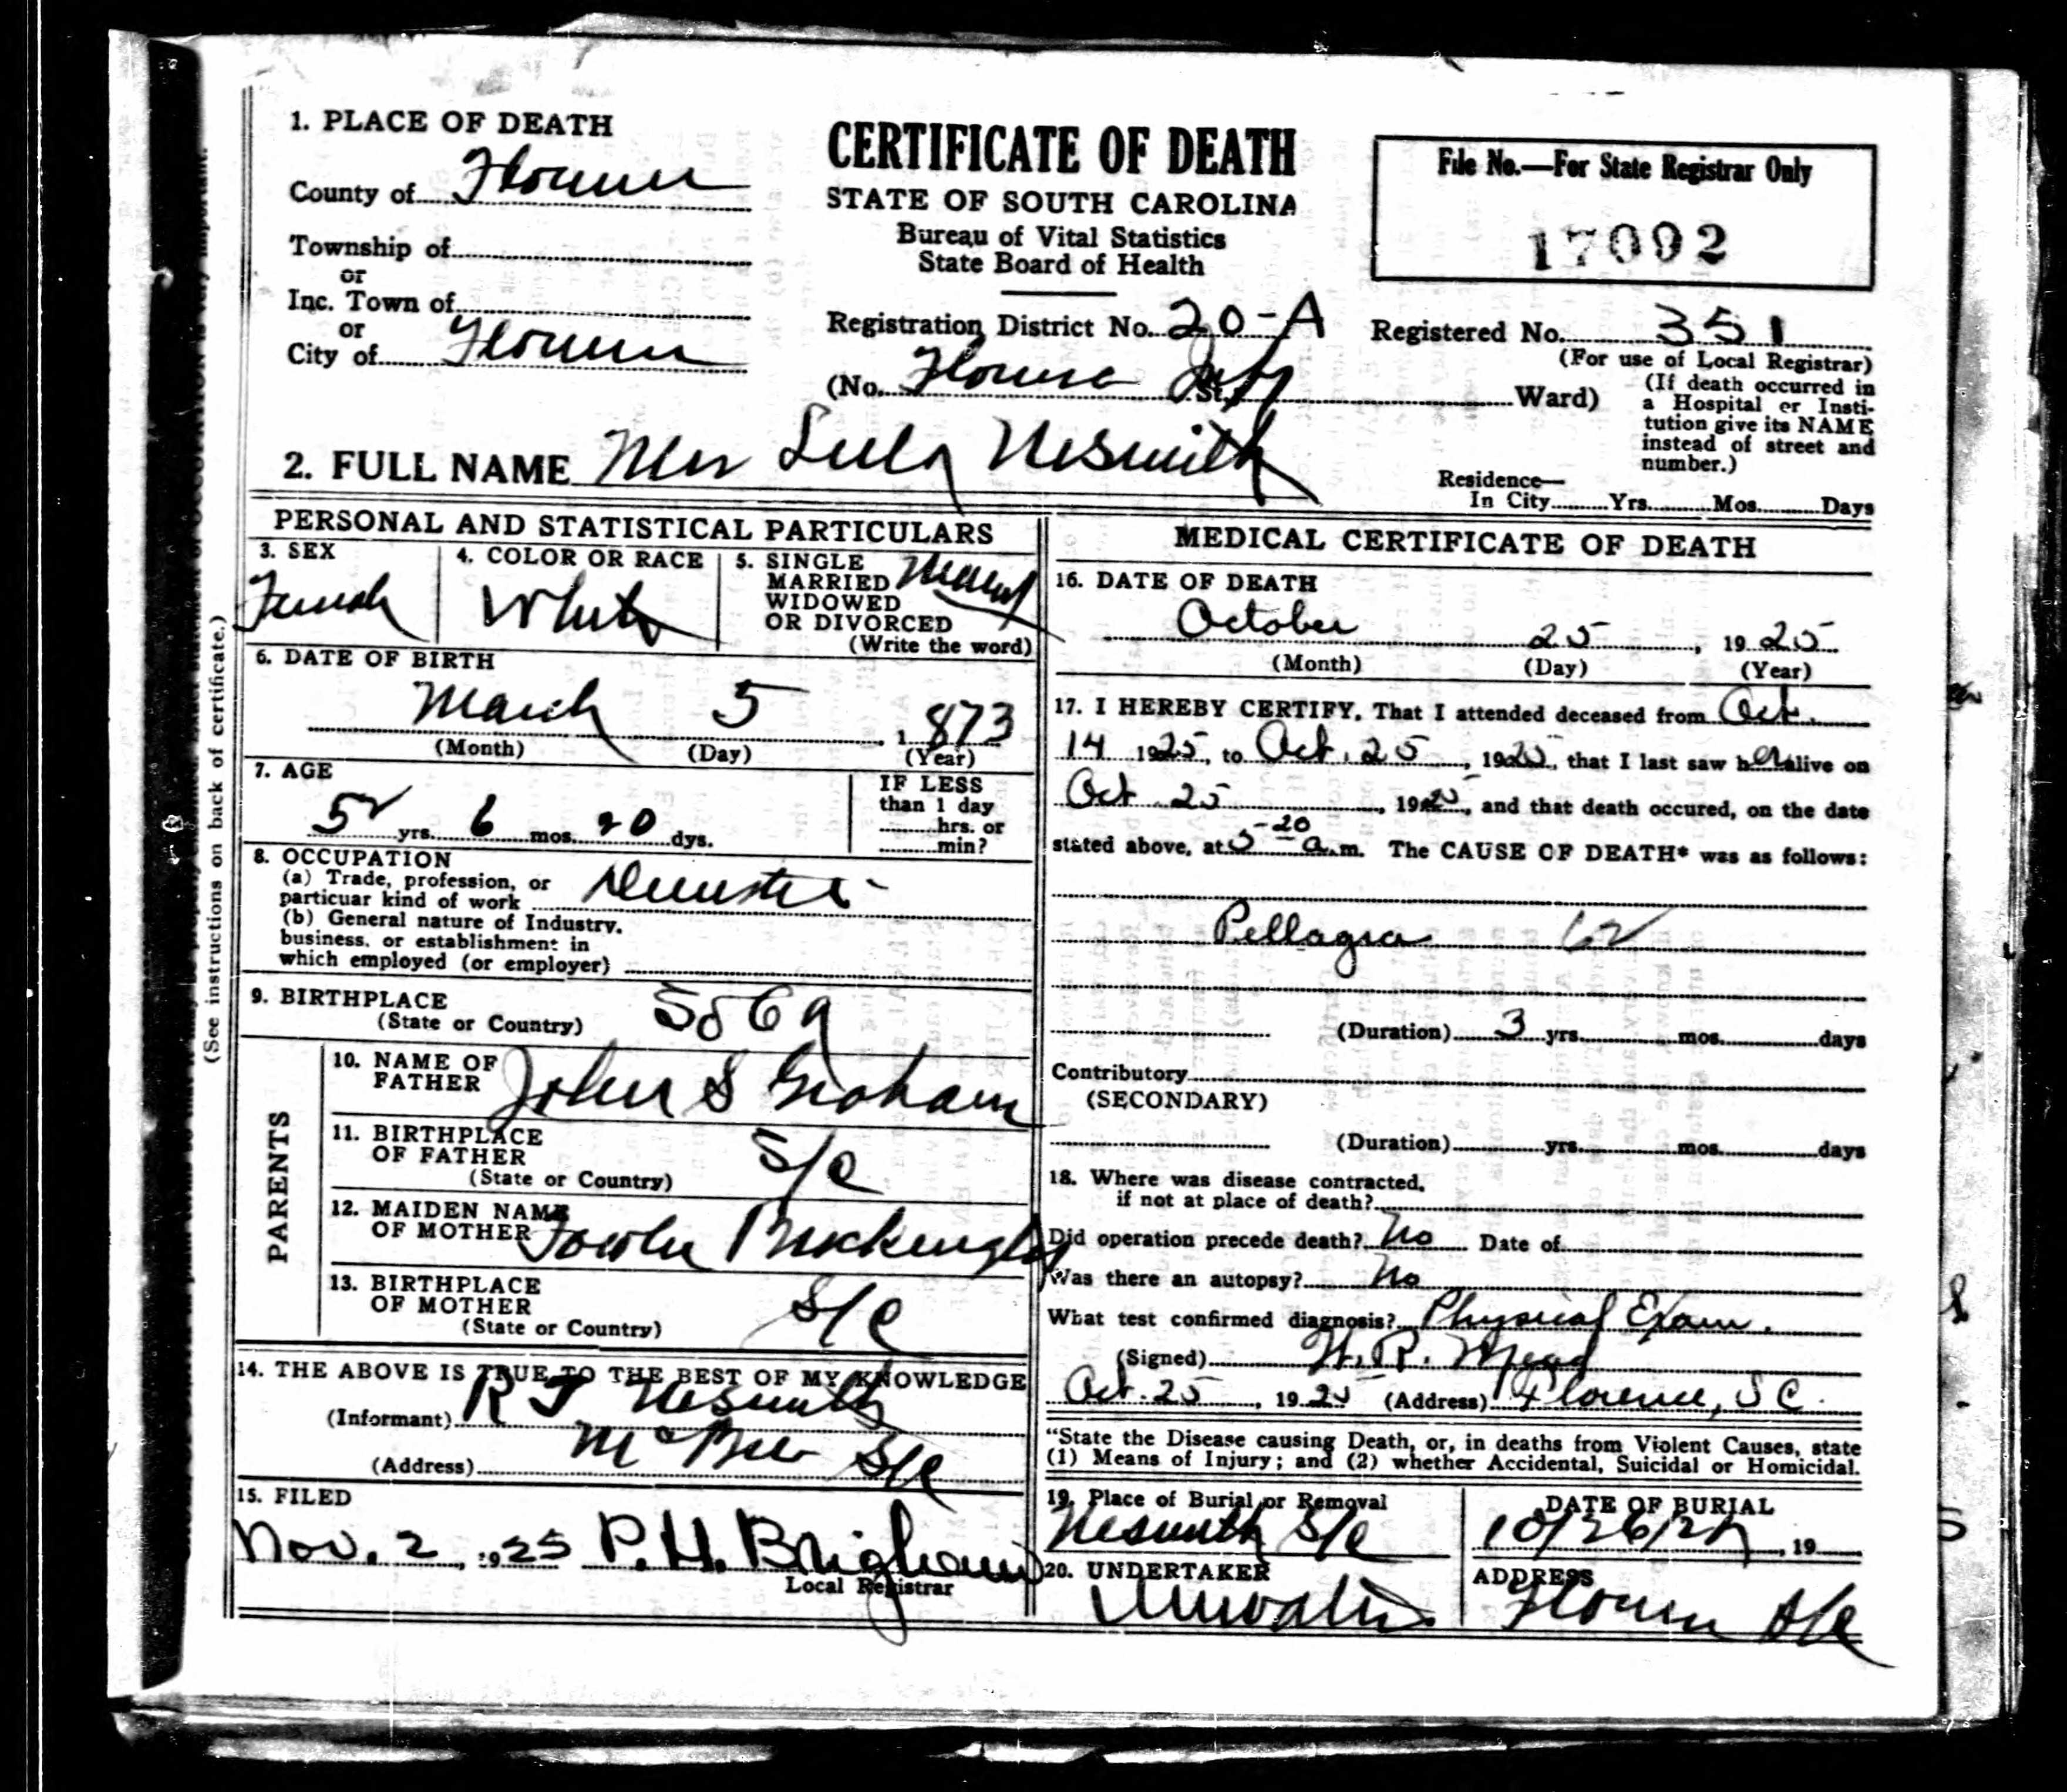 1. PLACE OF DEATH
County of Florence
Township of
or
Inc. Town of
or
City of Florence
CERTIFICATE OF DEATH
STATE OF SOUTH CAROLINA
Bureau of Vital Statistics
State Board of Health
Registration District No. 20-A
(No. Florence St. Ward)
File No.—For State Registrar Only
17092
Registered No. 351
(For use of Local Registrar)
(If death occurred in
a Hospital or Insti-
tution give its NAME
instead of street and
number.)
2. FULL NAME Mrs Lula Nesmith
Residence—
In City Yrs. Mos. Days
PERSONAL AND STATISTICAL PARTICULARS
3. SEX
Female
4. COLOR OR RACE
White
5. SINGLE
MARRIED
WIDOWED
OR DIVORCED
(Write the word)
Married
6. DATE OF BIRTH
March 5, 1873
(Month) (Day) (Year)
7. AGE
52 yrs. 6 mos. 20 dys.
IF LESS
than 1 day
hrs. or
min?
8. OCCUPATION
(a) Trade, profession, or
particuar kind of work Domestic
(b) General nature of Industry.
business, or establishment in
which employed (or employer)
9. BIRTHPLACE
(State or Country)
PARENTS
10. NAME OF
FATHER John S Graham
11. BIRTHPLACE
OF FATHER S/C
(State or Country)
12. MAIDEN NAME
OF MOTHER
13. BIRTHPLACE
OF MOTHER S/C
(State or Country)
14. THE ABOVE IS TRUE TO THE BEST OF MY KNOWLEDGE
(Informant) R J Nesmith
(Address) McBee S/C
15. FILED
Nov. 2, 1925 P. H. Brigham
Local Registrar
MEDICAL CERTIFICATE OF DEATH
16. DATE OF DEATH
October 25, 1925
(Month) (Day) (Year)
17. I HEREBY CERTIFY, That I attended deceased from Oct.
14 1925, to Oct. 25, 1925, that I last saw her alive on
Oct 25, 1925, and that death occured, on the date
stated above, at 5-20 a.m. The CAUSE OF DEATH* was as follows:
Pellagra 62
(Duration) 3 yrs. mos. days
Contributory
(SECONDARY)
(Duration) yrs. mos. days
18. Where was disease contracted,
if not at place of death?
Did operation precede death? No Date of
Was there an autopsy? No
What test confirmed diagnosis? Physical Exam.
(Signed) W. R. Mead
Oct. 25, 1925 (Address) Florence, S C.
"State the Disease causing Death, or, in deaths from Violent Causes, state
(1) Means of Injury; and (2) whether Accidental, Suicidal or Homicidal.
19. Place of Burial or Removal
Nesmith S/C
DATE OF BURIAL
10/26/25, 19
20. UNDERTAKER
ADDRESS
Florence S/C
(See instructions on back of certificate.)